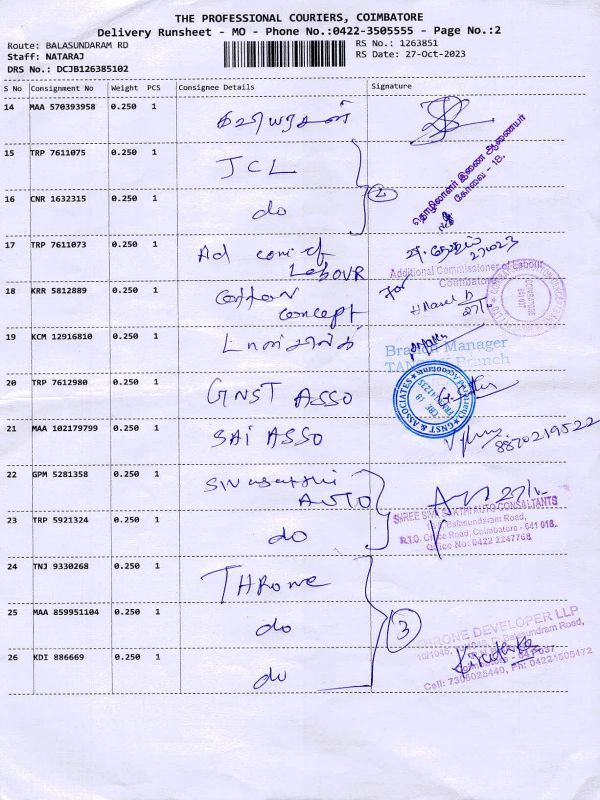 THE PROFESSIONAL COURIERS, COIMBATORE
Delivery Runsheet - MO - Phone No.:0422-3505555 - Page No.:2
Route: BALASUNDARAM RD
RS No.: 1263851
Staff: NATARAJ
RS Date: 27-Oct-2023
DRS No.: DCJB126385102
S No Consignment No Weight PCS Consignee Details Signature
14 MAA 570393958 0.250 1
15 TRP 7611075 0.250 1 JCL
தொழிலாளர் இணை ஆணையர்
கோவை - 18.
16 CNR 1632315 0.250 1 do 2
17 TRP 7611073 0.250 1 Ad com of
LabOUR
Additional Commissioner of Labour
Coimbatore
18 KRR 5812889 0.250 1 Cotton
concept
For
27/10
19 KCM 12916810 0.250 1
Branch Manager
Branch
20 TRP 7612980 0.250 1 GNST ASSO
GNST & ASSOCIATES
21 MAA 102179799 0.250 1 SAI ASSO 8870219522
22 GPM 5281358 0.250 1 Sivasakthi
AUTO
27/10
SHREE SIVASAKTHI AUTO CONSULTANTS
Balasundaram Road,
R.T.O. Office Road, Coimbatore - 641 018.
Office No: 0422 2247768
23 TRP 5921324 0.250 1 do
24 TNJ 9330268 0.250 1 THRone
25 MAA 859951104 0.250 1 do 3
THRONE DEVELOPER LLP
10/1045, Balasundram Road,
26 KDI 886669 0.250 1 do